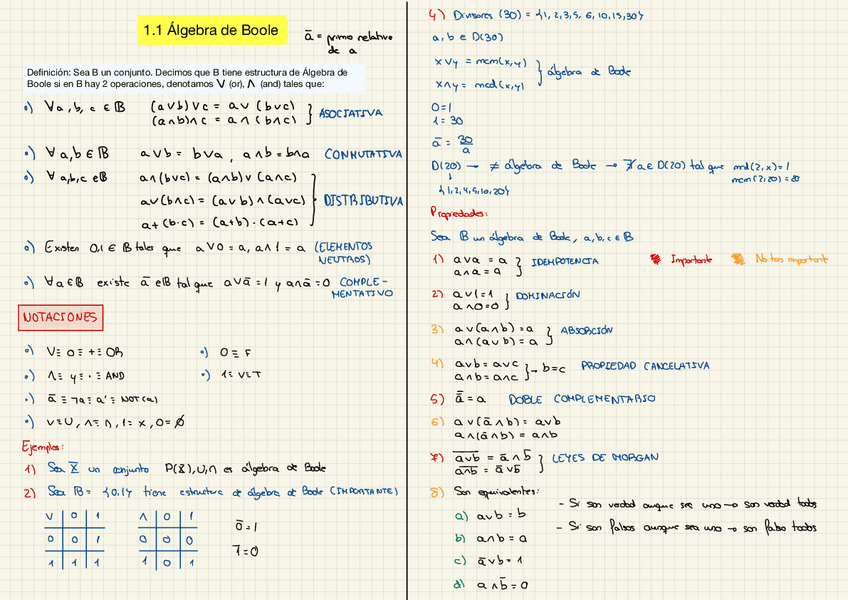 1.1 Álgebra de Boole
ā = primo relativo
de a
Definición: Sea B un conjunto. Decimos que B tiene estructura de Álgebra de
Boole si en B hay 2 operaciones, denotamos V (or), Λ (and) tales que:
o) ∀a,b,c ∈ B (a∨b)∨c = a∨(b∨c)
(a∧b)∧c = a∧(b∧c) } ASOCIATIVA
o) ∀a,b ∈ B a∨b = b∨a, a∧b = b∧a CONMUTATIVA
o) ∀a,b,c ∈ B a∧(b∨c) = (a∧b)∨(a∧c)
a∨(b∧c) = (a∨b)∧(a∨c) } DISTRIBUTIVA
a+(b·c) = (a+b)·(a+c)
o) Existen 0,1 ∈ B tales que a∨0 = a, a∧1 = a (ELEMENTOS
NEUTROS)
o) ∀a∈B existe ā ∈B tal que a∨ā = 1 y a∧ā = 0 COMPLE-
MENTATIVO
NOTACIONES
o) V ≡ o ≡ + ≡ OR
o) 0 ≡ F
o) Λ ≡ y ≡ · ≡ AND
o) 1 ≡ V ≡ T
o) ā ≡ ¬a ≡ a' ≡ NOT(a)
o) ∨ ≡ ∪, ∧ ≡ ∩, 1 = x, 0 = ∅
Ejemplos:
1) Sea X un conjunto P(X),∪,∩ es álgebra de Boole
2) Sea B = {0,1} tiene estructura de álgebra de Boole (IMPORTANTE)
V 0 1
0 0 1
1 1 1
Λ 0 1
0 0 0
1 0 1
0̄ = 1
1̄ = 0
4) Divisores (30) = {1,2,3,5,6,10,15,30}
a,b ∈ D(30)
x∨y = mcm(x,y)
x∧y = mcd(x,y) } álgebra de Boole
0=1
1=30
ā = 30/a
D(20) → ≠ álgebra de Boole → ∄ a∈D(20) tal que mcd(2,x)=1
mcm(2,20)=20
↓
{1,2,4,5,10,20}
Propiedades:
Sea B un álgebra de Boole, a,b,c ∈ B
Importante
No tan importante
1) a∨a = a
a∧a = a } IDEMPOTENCIA
2) a∨1=1
a∧0=0 } DOMINACIÓN
3) a∨(a∧b) = a
a∧(a∨b) = a } ABSORCIÓN
4) a∨b = a∨c
a∧b = a∧c } → b=c PROPIEDAD CANCELATIVA
5) a̿ = a DOBLE COMPLEMENTARIO
6) a∨(ā∧b) = a∨b
a∧(ā∨b) = a∧b
7) a∨b = ā∧b̄
a∧b = ā∨b̄ } LEYES DE MORGAN
8) Son equivalentes:
- Si son verdad aunque sea uno → son verdad todos
a) a∨b = b
- Si son falsos aunque sea uno → son falso todos
b) a∧b = a
c) ā∨b = 1
d) a∧b̄ = 0